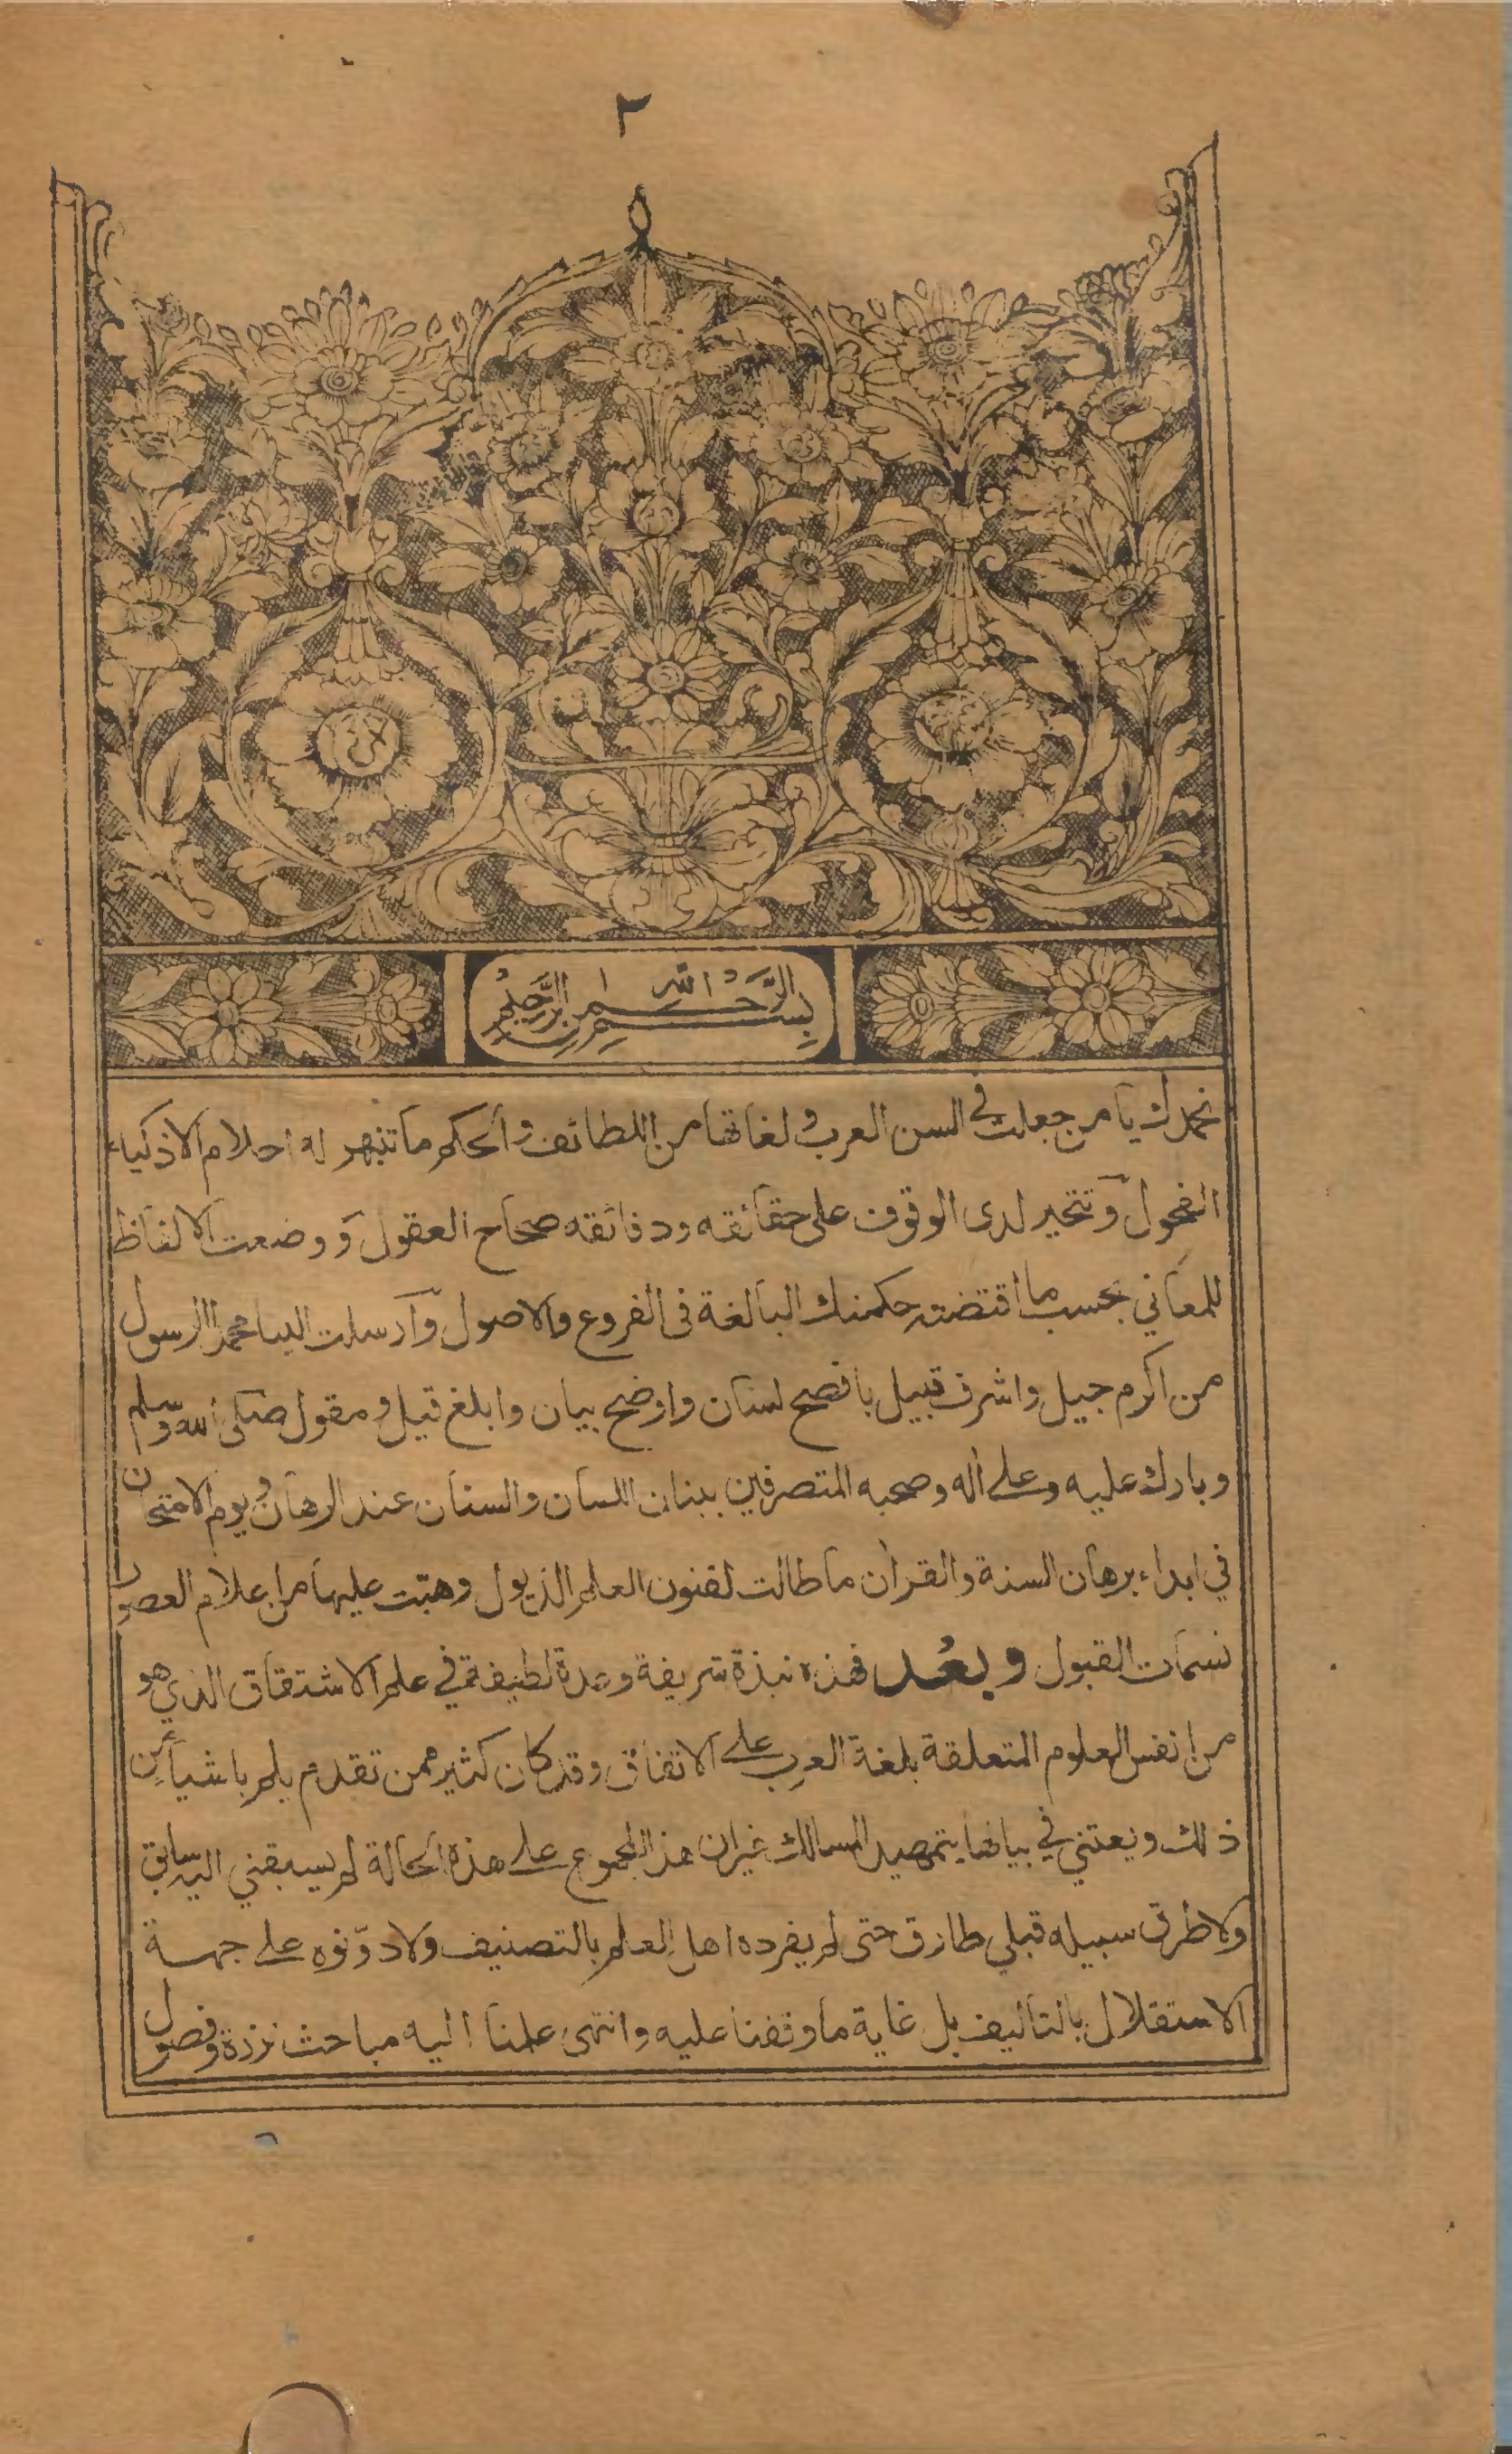 ٢
بسم الله الرحمن الرحيم
نحمدك يا من جعلت في السن العرب و لغاتها من اللطائف و الحكم ما تنبهر له احلام الاذكياء
الفحول و تتحير لدى الوقوف على حقائقه ودقائقه صحاح العقول و وضعت الالفاظ
للمعاني بحسب ما اقتضته حكمتك البالغة فى الفروع والاصول و ارسلت الينا محمدا الرسول
من اكرم جيل واشرف قبيل بافصح لسان واوضح بيان وابلغ قيل و مقول صلى الله وسلم
وبارك عليه وعلى أله وصحبه المتصرفين ببنان اللسان والسنان عند الرهان و يوم الامتحان
في ابداء برهان السنة والقرأن ما طالت لفنون العلم الذيول وهبّت عليها من اعلام العصور
نسمات القبول وبعُد فهذه نبذة شريفة وعدة لطيفة في علم الاشتقاق الذي هو
من انفس العلوم المتعلقة بلغة العرب على الاتفاق وقد كان كثير ممن تقدم يلم باشياء من
ذلك ويعتني في بيانها بتمهيد المسالك غير ان هذا المجموع على هذه الحالة لم يسبقني اليه سابق
ولا طرق سبيله قبلي طارق حتى لم يفرده اهل العلم بالتصنيف ولا دوّنوه على جهة
الاستقلال بالتأليف بل غاية ما وقفنا عليه وانتهى علمنا اليه مباحث نزرة و فصول